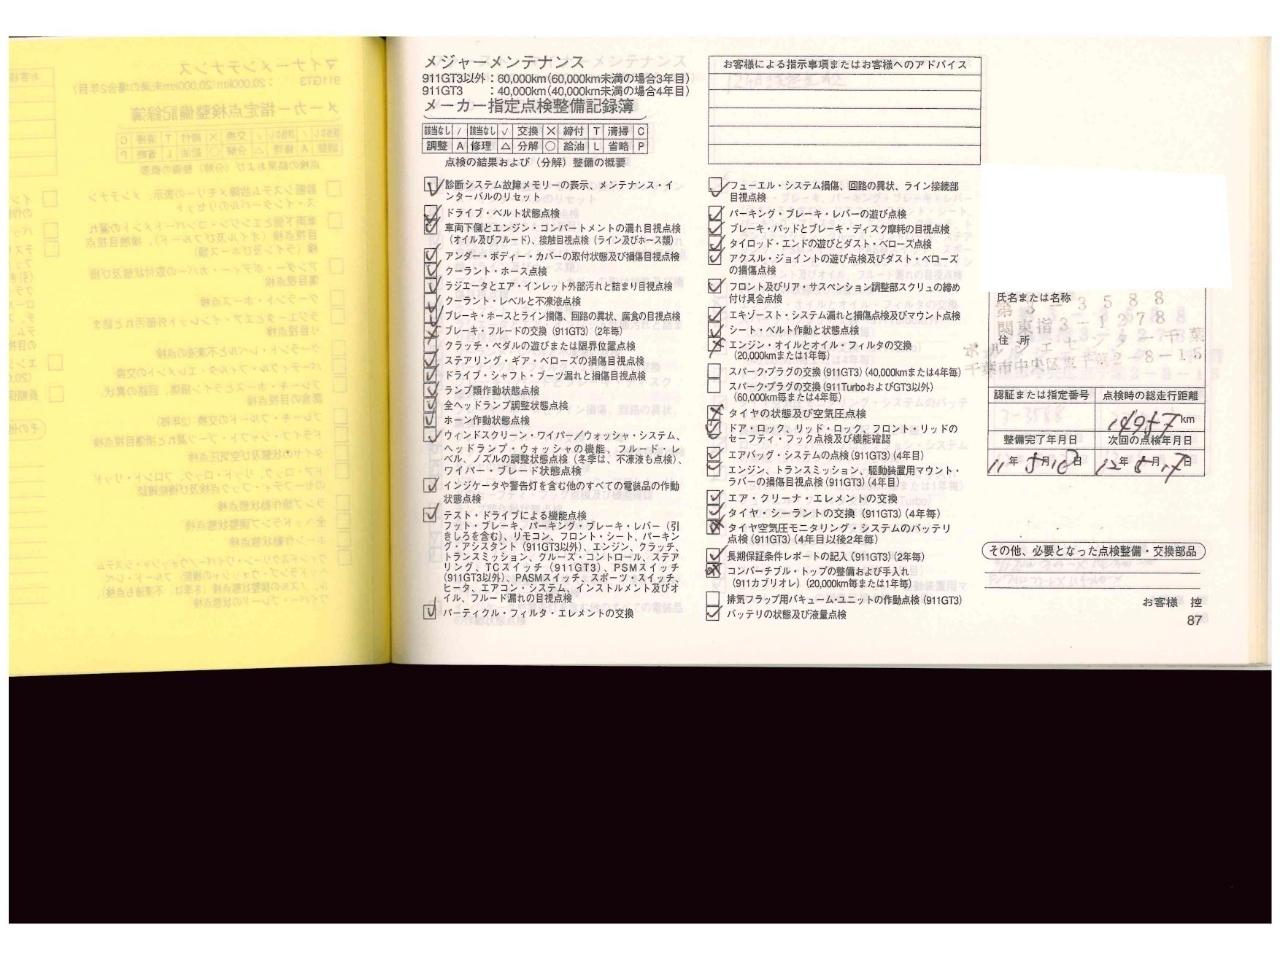 メジャーメンテナンス
911GT3以外：60,000km(60,000km未満の場合3年目)
911GT3　：40,000km(40,000km未満の場合4年目)
メーカー指定点検整備記録簿
該当なし / 該当なし √ 交換 × 締付 T 清掃 C
調整 A 修理 △ 分解 ○ 給油 L 省略 P
点検の結果および（分解）整備の概要
診断システム故障メモリーの表示、メンテナンス・イ
ンターバルのリセット
ドライブ・ベルト状態点検
車両下側とエンジン・コンパートメントの漏れ目視点検
（オイル及びフルード）、接触目視点検（ライン及びホース類）
アンダー・ボディー・カバーの取付状態及び損傷目視点検
クーラント・ホース点検
ラジエータとエア・インレット外部汚れと詰まり目視点検
クーラント・レベルと不凍液点検
ブレーキ・ホースとライン損傷、回路の異状、腐食の目視点検
ブレーキ・フルードの交換（911GT3）（2年毎）
クラッチ・ペダルの遊びまたは限界位置点検
ステアリング・ギア・ベローズの損傷目視点検
ドライブ・シャフト・ブーツ漏れと損傷目視点検
ランプ類作動状態点検
全ヘッドランプ調整状態点検
ホーン作動状態点検
ウィンドスクリーン・ワイパー／ウォッシャ・システム、
ヘッドランプ・ウォッシャの機能、フルード・レ
ベル、ノズルの調整状態点検（冬季は、不凍液も点検）、
ワイパー・ブレード状態点検
インジケータや警告灯を含む他のすべての電装品の作動
状態点検
テスト・ドライブによる機能点検
フット・ブレーキ、パーキング・ブレーキ・レバー（引
きしろを含む）、リモコン、フロント・シート、パーキン
グ・アシスタント（911GT3以外）、エンジン、クラッチ、
トランスミッション、クルーズ・コントロール、ステア
リング、TCスイッチ（911GT3）、PSMスイッチ
（911GT3以外）、PASMスイッチ、スポーツ・スイッチ、
ヒータ、エアコン・システム、インストルメント及びオ
イル、フルード漏れの目視点検
パーティクル・フィルタ・エレメントの交換
お客様による指示事項またはお客様へのアドバイス
フューエル・システム損傷、回路の異状、ライン接続部
目視点検
パーキング・ブレーキ・レバーの遊び点検
ブレーキ・パッドとブレーキ・ディスク摩耗の目視点検
タイロッド・エンドの遊びとダスト・ベローズ点検
アクスル・ジョイントの遊び点検及びダスト・ベローズ
の損傷点検
フロント及びリア・サスペンション調整部スクリュの締め
付け具合点検
エキゾースト・システム漏れと損傷点検及びマウント点検
シート・ベルト作動と状態点検
エンジン・オイルとオイル・フィルタの交換
（20,000kmまたは1年毎）
スパーク・プラグの交換（911GT3）（40,000kmまたは4年毎）
スパーク・プラグの交換（911TurboおよびGT3以外）
（60,000km毎または4年毎）
タイヤの状態及び空気圧点検
ドア・ロック、リッド・ロック、フロント・リッドの
セーフティ・フック点検及び機能確認
エアバッグ・システムの点検（911GT3）（4年目）
エンジン、トランスミッション、駆動装置用マウント・
ラバーの損傷目視点検（911GT3）（4年目）
エア・クリーナ・エレメントの交換
タイヤ・シーラントの交換（911GT3）（4年毎）
タイヤ空気圧モニタリング・システムのバッテリ
点検（911GT3）（4年目以後2年毎）
長期保証条件レポートの記入（911GT3）（2年毎）
コンバーチブル・トップの整備および手入れ
（911カブリオレ）（20,000km毎または1年毎）
排気フラップ用バキューム・ユニットの作動点検（911GT3）
バッテリの状態及び液量点検
氏名または名称
第3-3588
関東指3-1278
住所
ポルシェセンター千葉
千葉市中央区東千葉2-8-15
認証または指定番号 点検時の総走行距離
14957 km
整備完了年月日 次回の点検年月日
11年5月18日 12年5月17日
その他、必要となった点検整備・交換部品
お客様 控
87